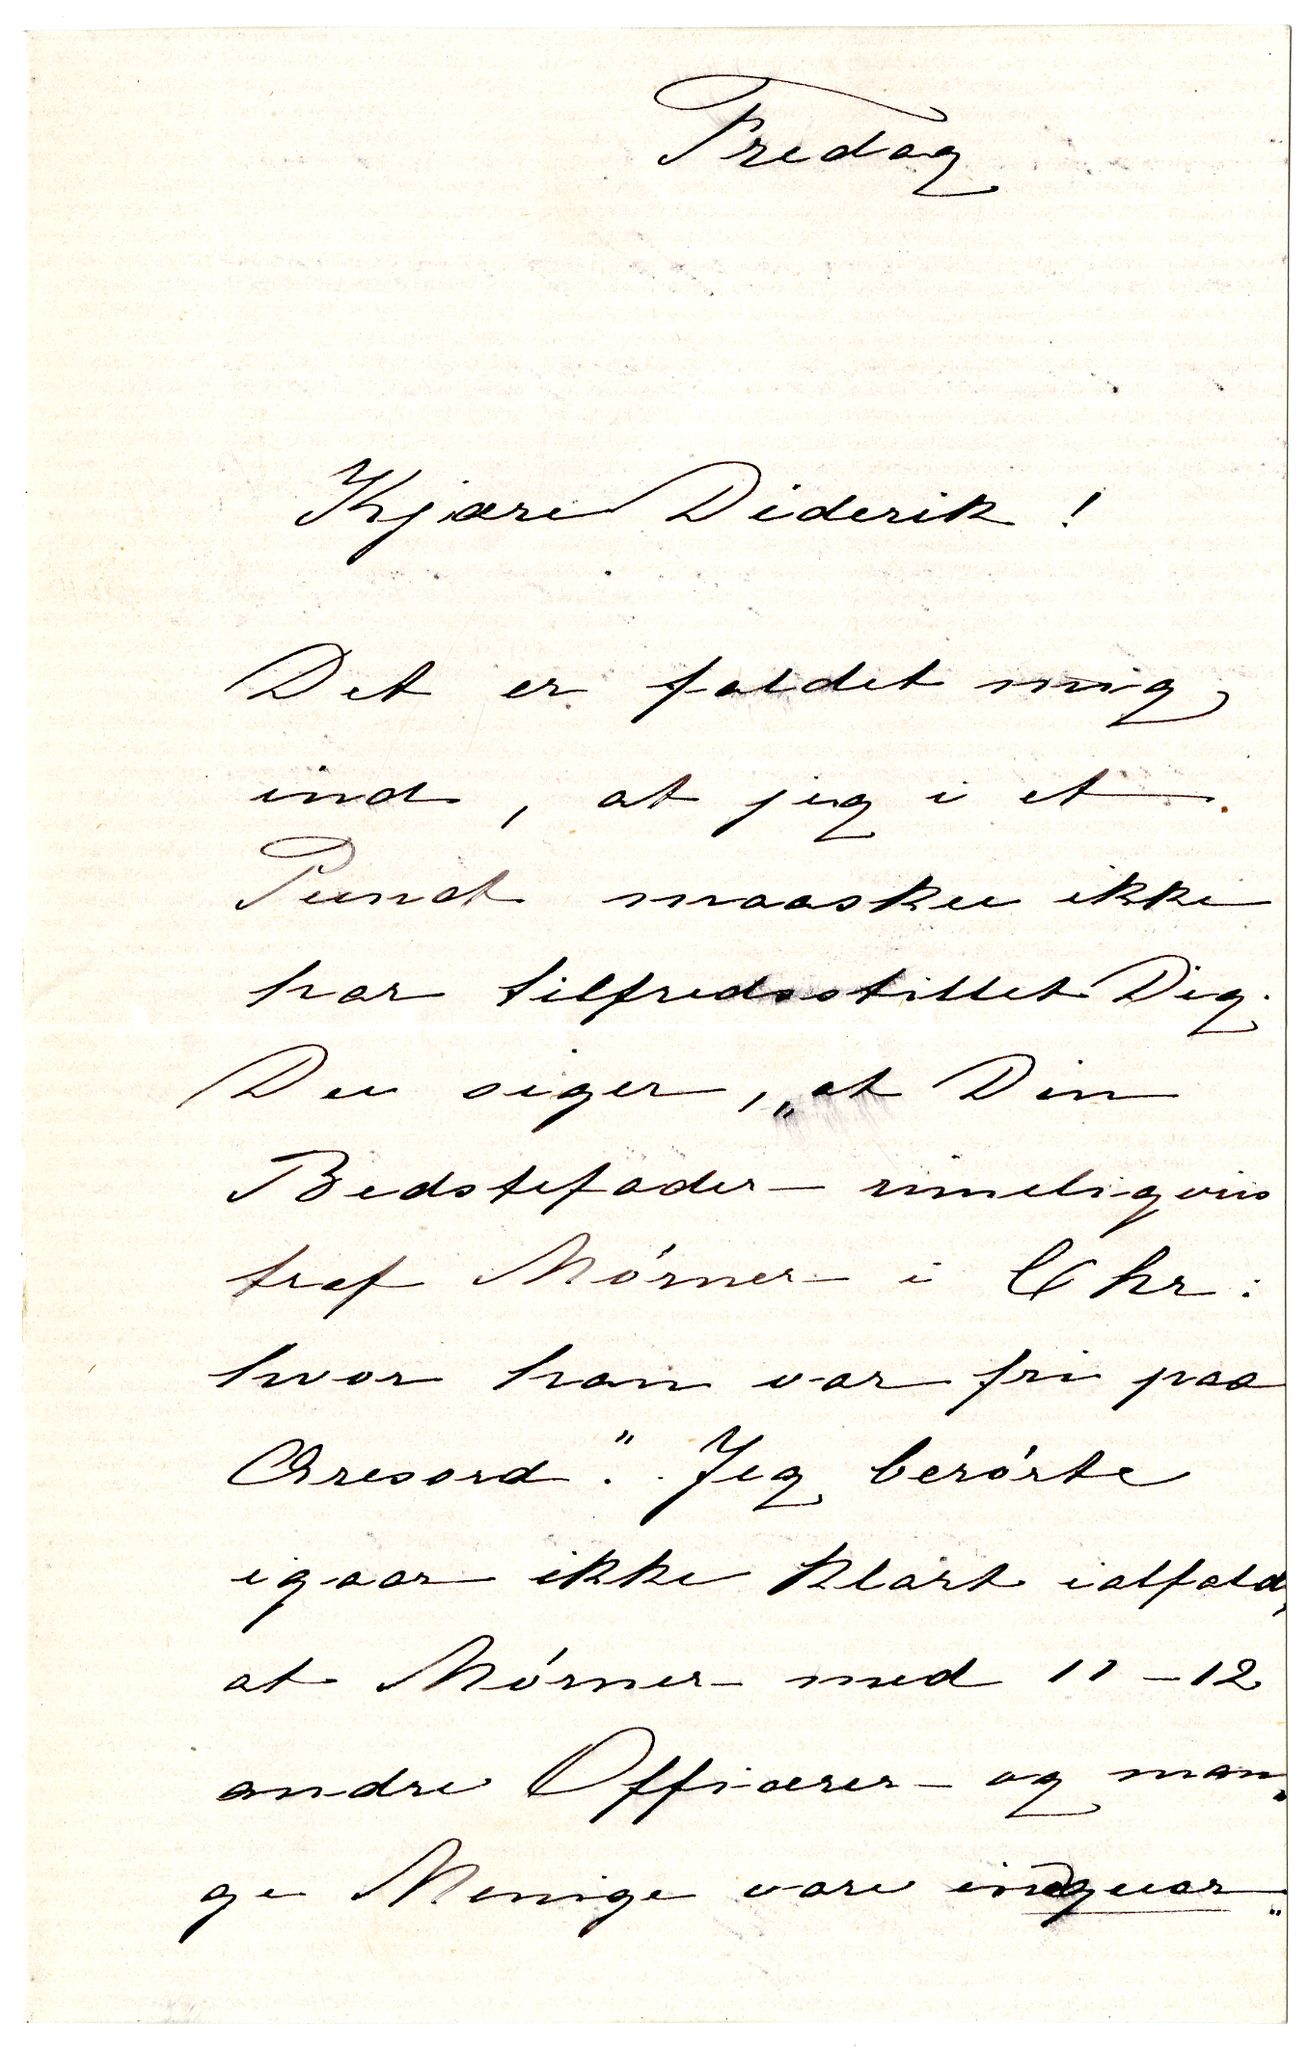 Fredag
Kjære Diderik !
Det er faldet mig
ind, at jeg i et
Punct maaskee ikke
har tilfredsstillet Dig.
Du siger, „at Din
Bedstefader rimeligviis
traf Mörner i Chr:
hvor han var fri paa
Æresord”. Jeg berörte
igaar ikke klart ialfald,
at Mörner med 11-12
andre Officerer og man„
ge Menige vare indquar„